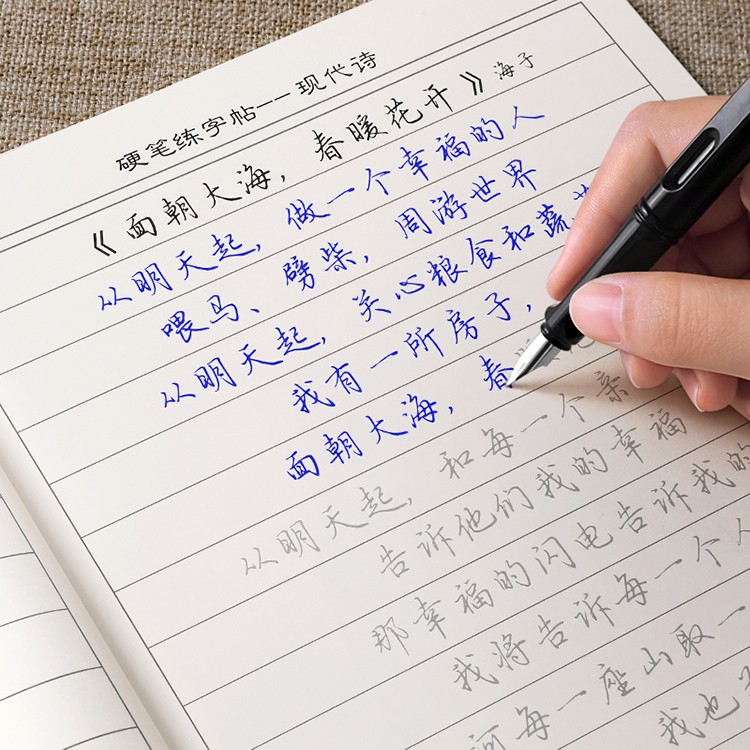 硬笔练字帖--现代诗
《面朝大海，春暖花开》海子
从明天起，做一个幸福的人
喂马、劈柴，周游世界
从明天起，关心粮食和蔬
我有一所房子，
面朝大海，春
从明天起，和每一个亲
告诉他们我的幸福
那幸福的闪电告诉我的
我将告诉每一个人
河每一座山取一
我也